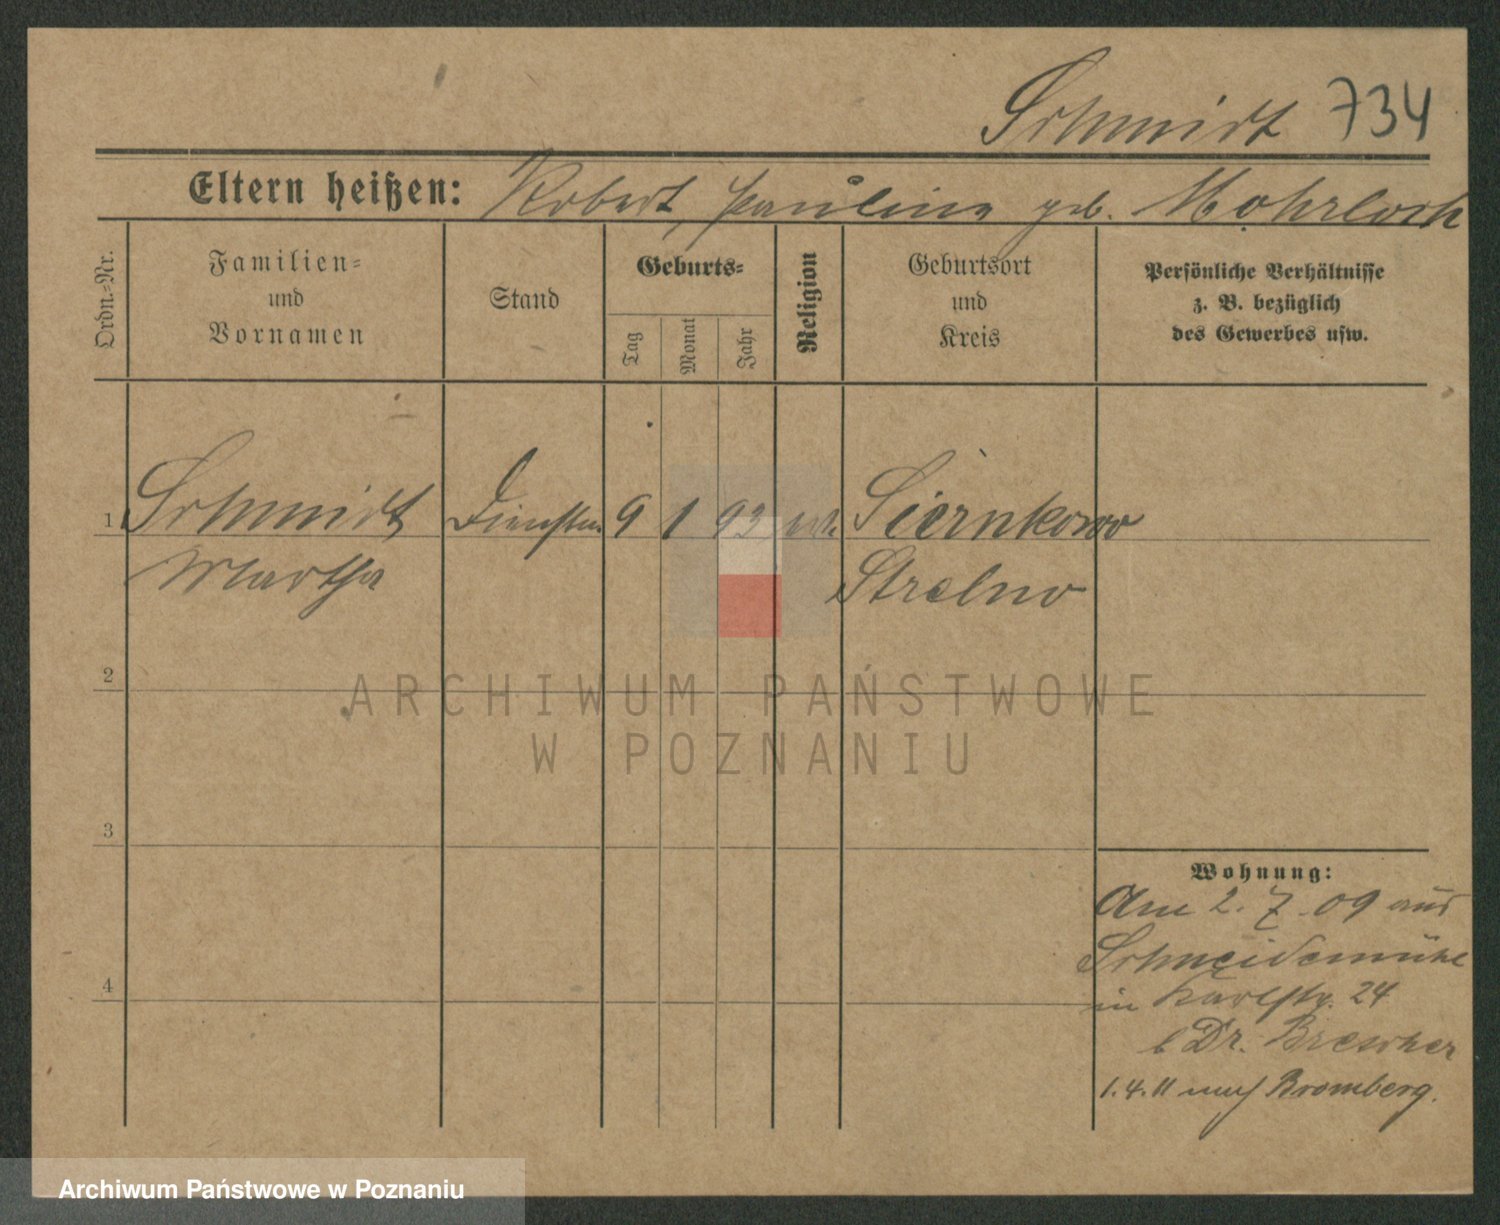 Schmidt 734
Eltern heißen: Robert, Pauline geb. Mohrlock
Ordn.-Nr.
Familien-
und
Vornamen
Stand
Geburts-
Tag
Monat
Jahr
Religion
Geburtsort
und
Kreis
Persönliche Verhältnisse
z. B. bezüglich
des Gewerbes usw.
1 Schmidt Dienstm. 9 1 93 Siernkowo
Martha Strelno
2
ARCHIWUM PAŃSTWOWE
W POZNANIU
3
Wohnung:
Am 2. 7. 09 aus
Schneidemühl
in Karlstr. 24
b Dr. Brescher
4
1.4.11 nach Bromberg.
Archiwum Państwowe w Poznaniu